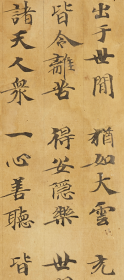 出于世間 猶如大雲 充
皆令離苦 得安隱樂 世
諸天人衆 一心善聽 皆